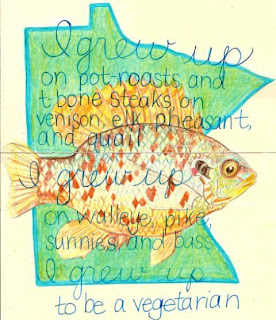 I grew up
on pot-roasts, and
t-bone steaks, on
venison, elk, pheasant,
and quail
I grew up
on walleye, pike,
sunnies, and bass
I grew up
to be a vegetarian